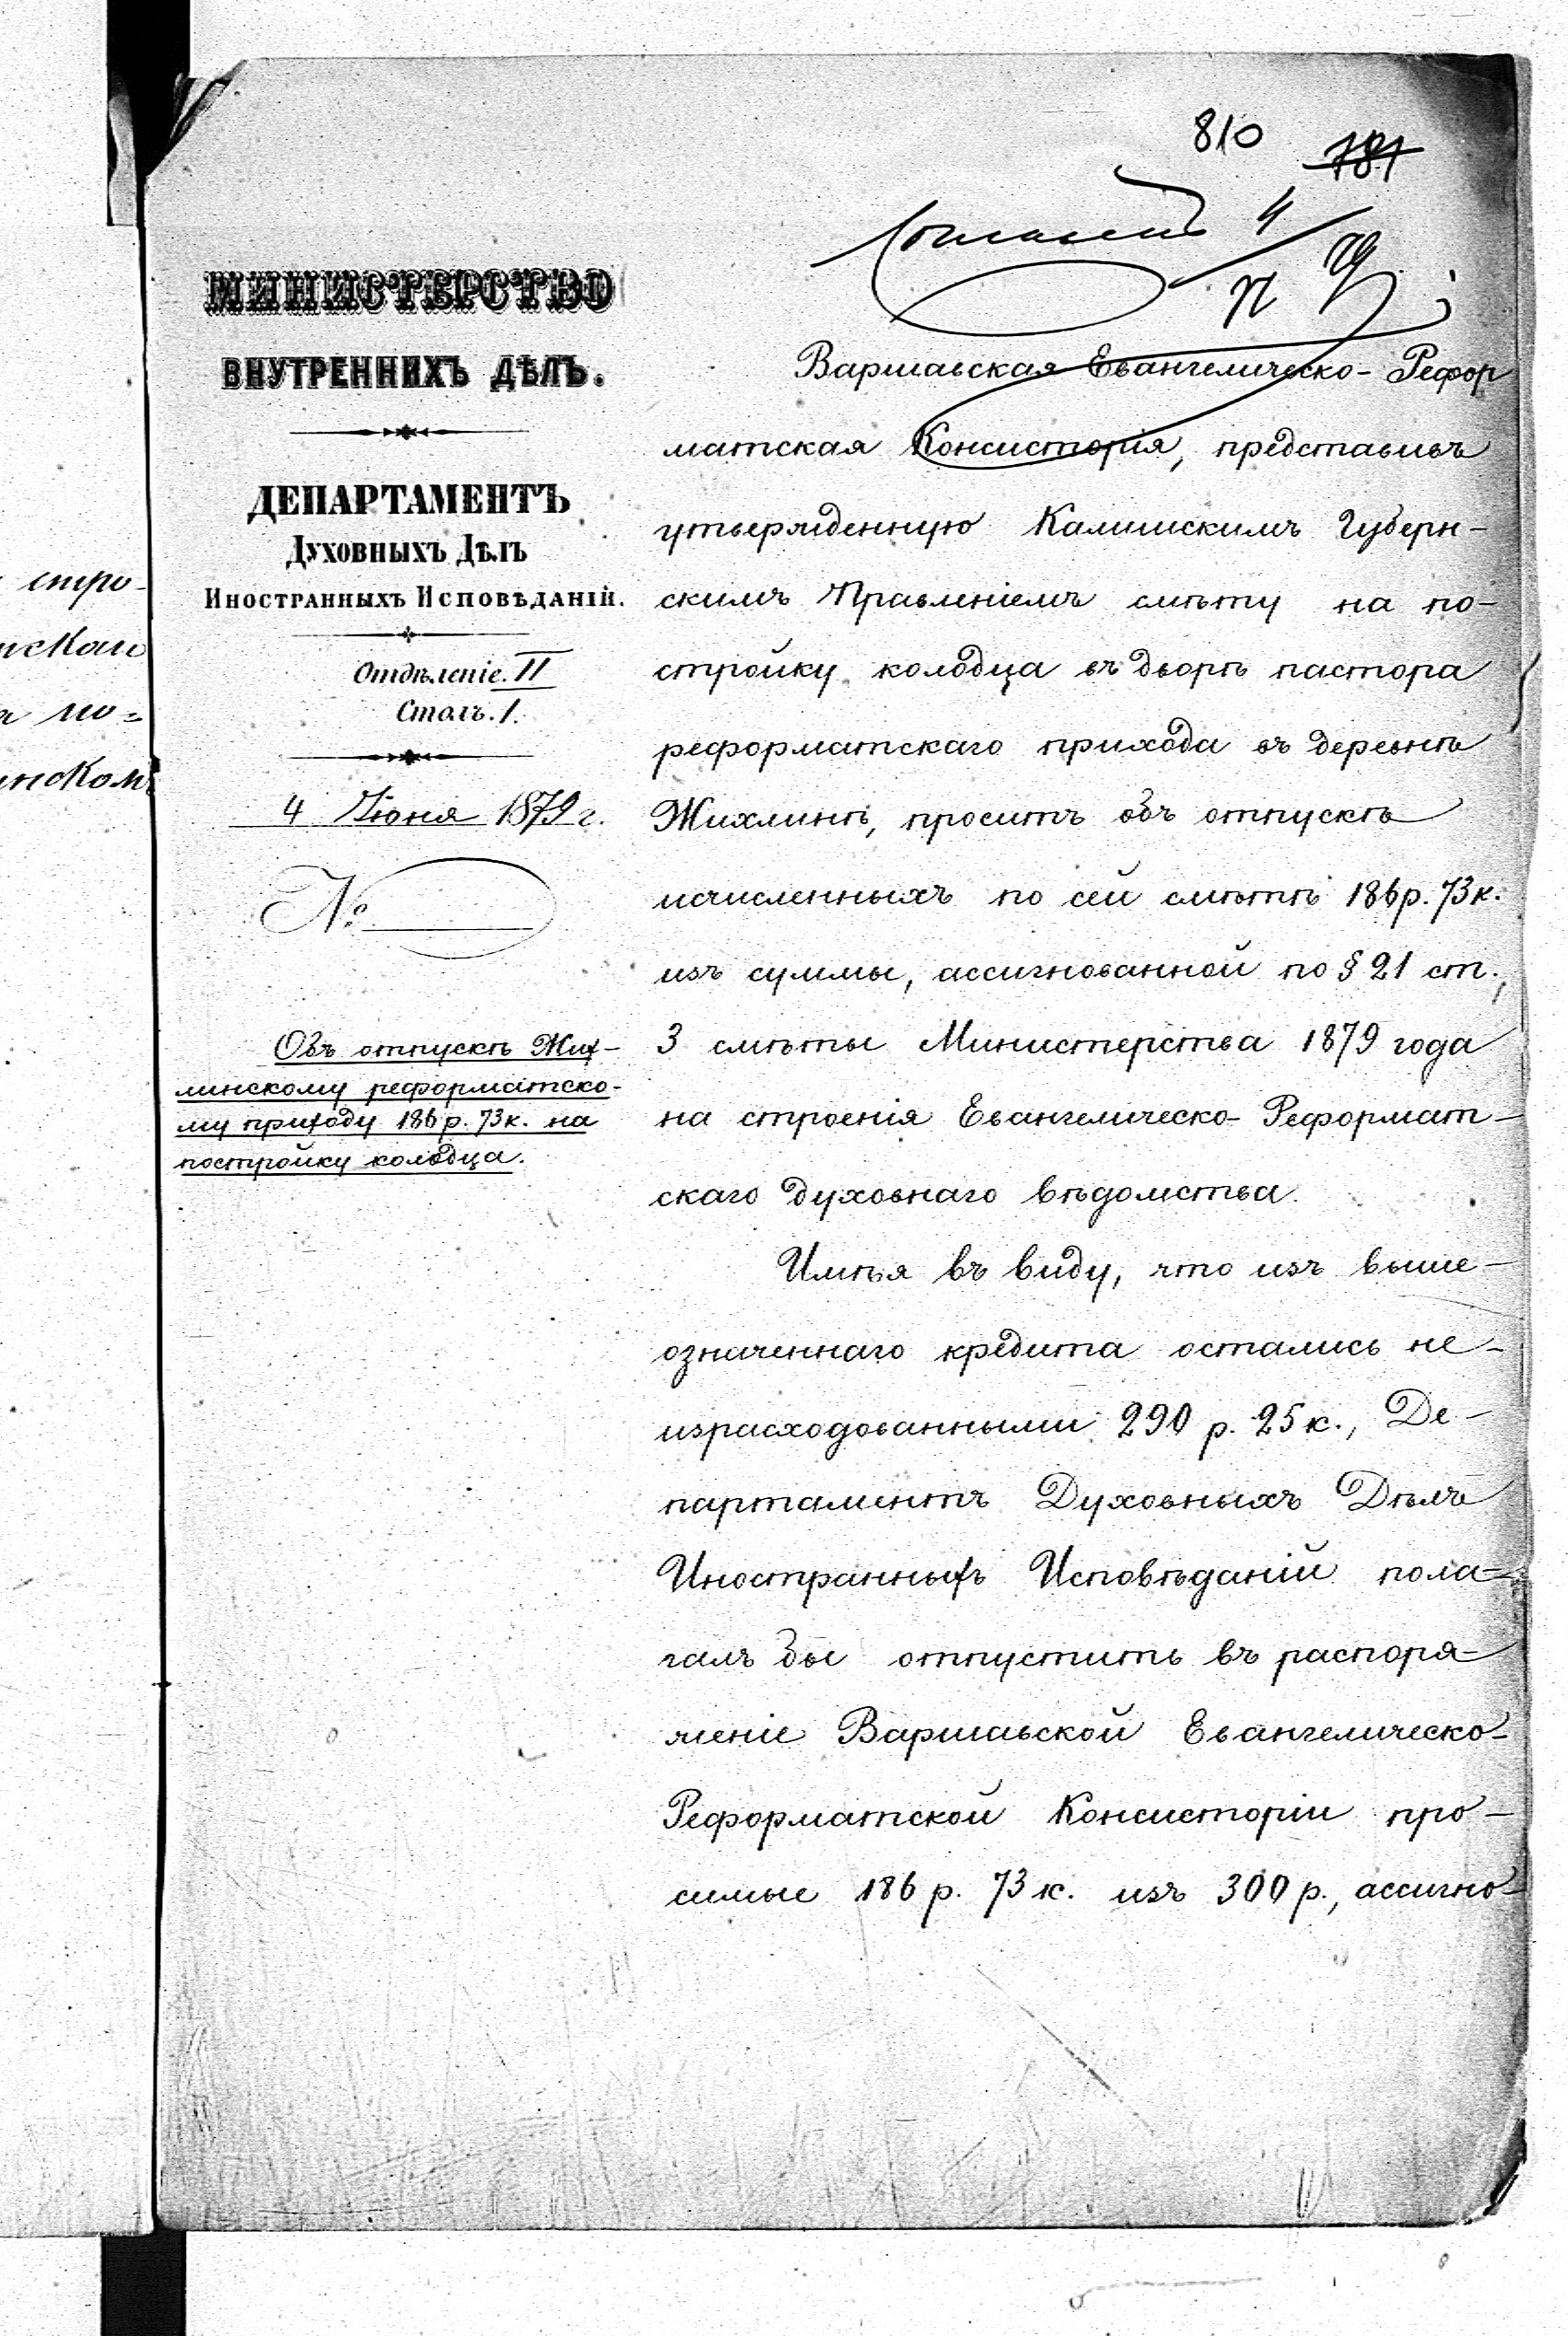 810 781
Согласенъ 4
МИНИСТЕРСТВО
ВНУТРЕННИХЪ ДѢЛЪ.
ДЕПАРТАМЕНТЪ
Духовныхъ Дѣлъ
Иностранныхъ Исповѣданій.
Отдѣленіе. II
Столъ. 1.
4 Іюня 1879 г.
№
Объ отпускѣ Жих-
линскому реформатско-
му приходу 186 р. 73 к. на
постройку колодца.
Варшавская Евангелическо-Рефор
матская Консисторія, представивъ
утвержденную Калишскимъ Губерн-
скимъ Правленіемъ смѣту на по-
стройку колодца въ дворѣ пастора
реформатскаго прихода въ деревнѣ
Жихлинѣ, проситъ объ отпускѣ
исчисленныхъ по сей смѣтѣ 186 р. 73 к.
изъ суммы, ассигнованной по § 21 ст.,
3 смѣты Министерства 1879 года
на строенія Евангелическо-Реформат-
скаго духовнаго вѣдомства.
Имѣя въ виду, что изъ выше-
означеннаго кредита остались не-
израсходованными 290 р. 25 к., Де-
партаментъ Духовныхъ Дѣлъ
Иностранныхъ Исповѣданій пола-
галъ бы отпустить въ распоря-
женіе Варшавской Евангелическо-
Реформатской Консисторіи про-
симые 186 р. 73 к. изъ 300 р., ассигно-